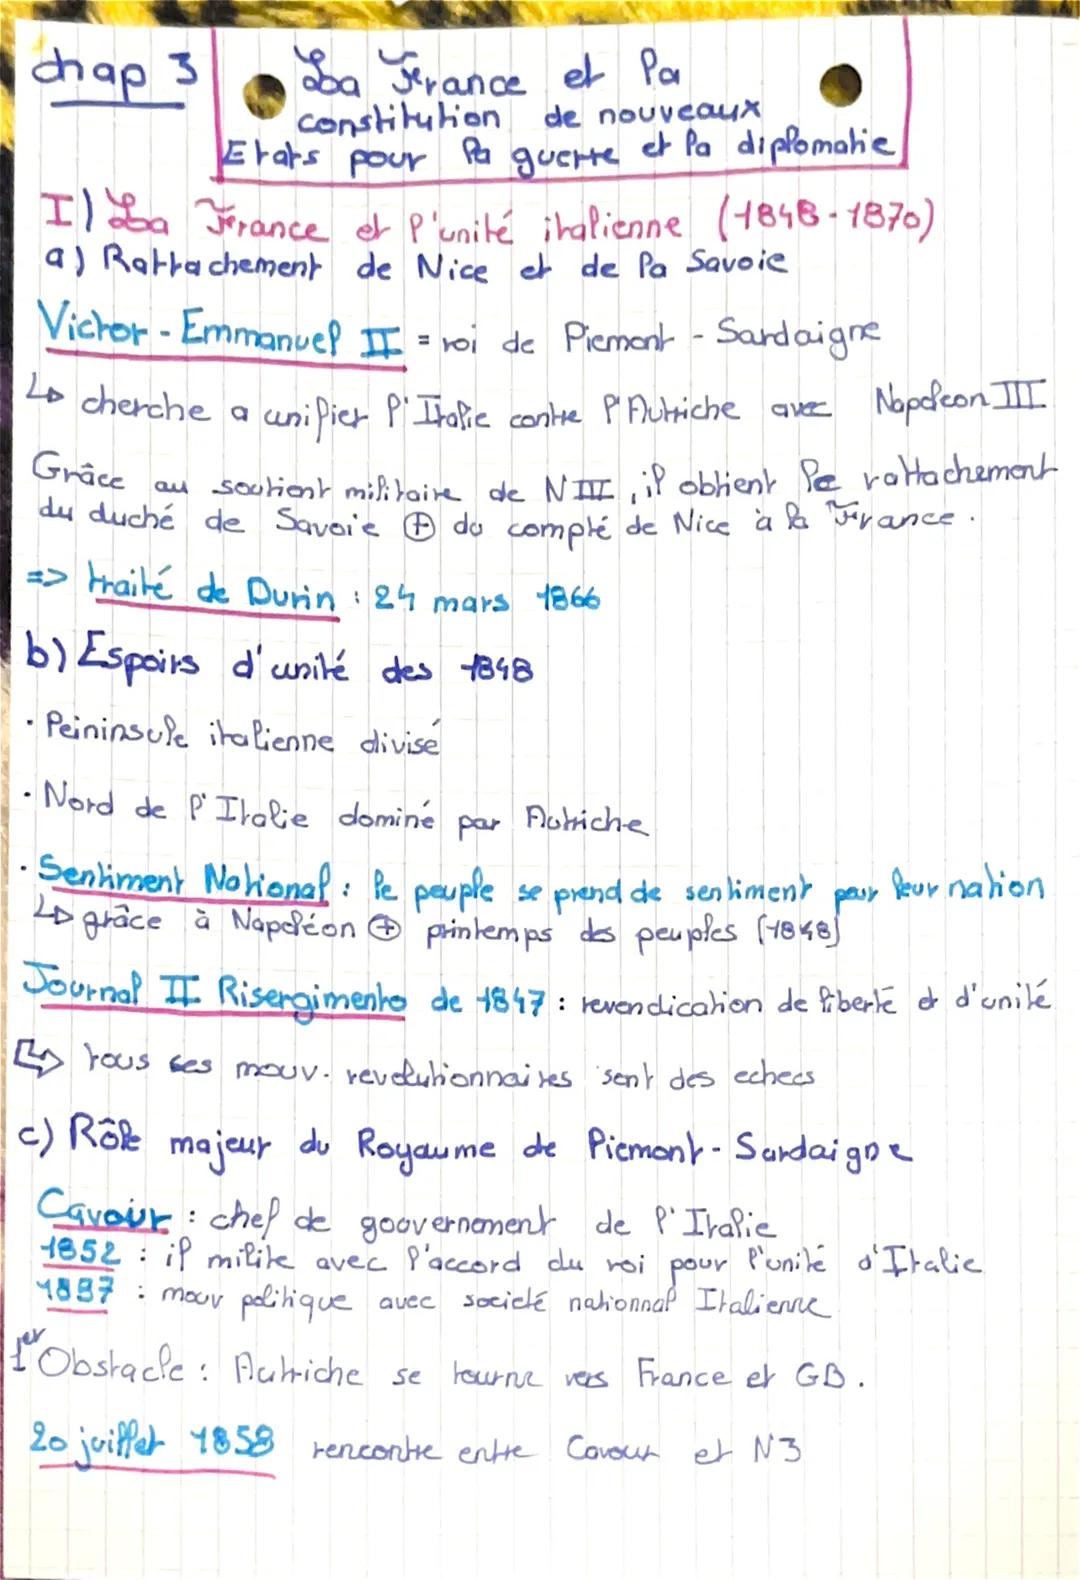 chap 3
La France et la
constitution de nouveaux
Etats pour la guerre et la diplomatie
I) La France et l'unité italienne (1848-1870)
a) Rattachement de Nice et de la Savoie
Victor-Emmanuel II = roi de Piemont - Sardaigne
↳ cherche a unifier l'Italie contre l'Autriche avec Napoleon III
Grâce au soutient militaire de NIII, il obtient le rattachement
du duché de Savoie ⊕ du compté de Nice à la France.
=> traité de Durin : 24 mars 1866
b) Espoirs d'unité des 1848
· Peininsule italienne divisé
· Nord de l'Italie dominé par Autriche
· Sentiment National : le peuple se prend de sentiment pour leur nation
↳ grâce à Napoléon ⊕ printemps des peuples (1848)
Journal II Risergimento de 1847 : revendication de liberté et d'unité
↳ tous ces mouv. revolutionnaires sent des echecs
c) Rôle majeur du Royaume de Piemont - Sardaigne
Cavour : chef de gouvernement de l'Italie
1852 : il milite avec l'accord du roi pour l'unité d'Italie
1897 : mouv politique avec societé nationnal Italienne
1er Obstacle : Autriche se tourne vers France et GB.
20 juillet 1858 rencontre entre Cavour et N3